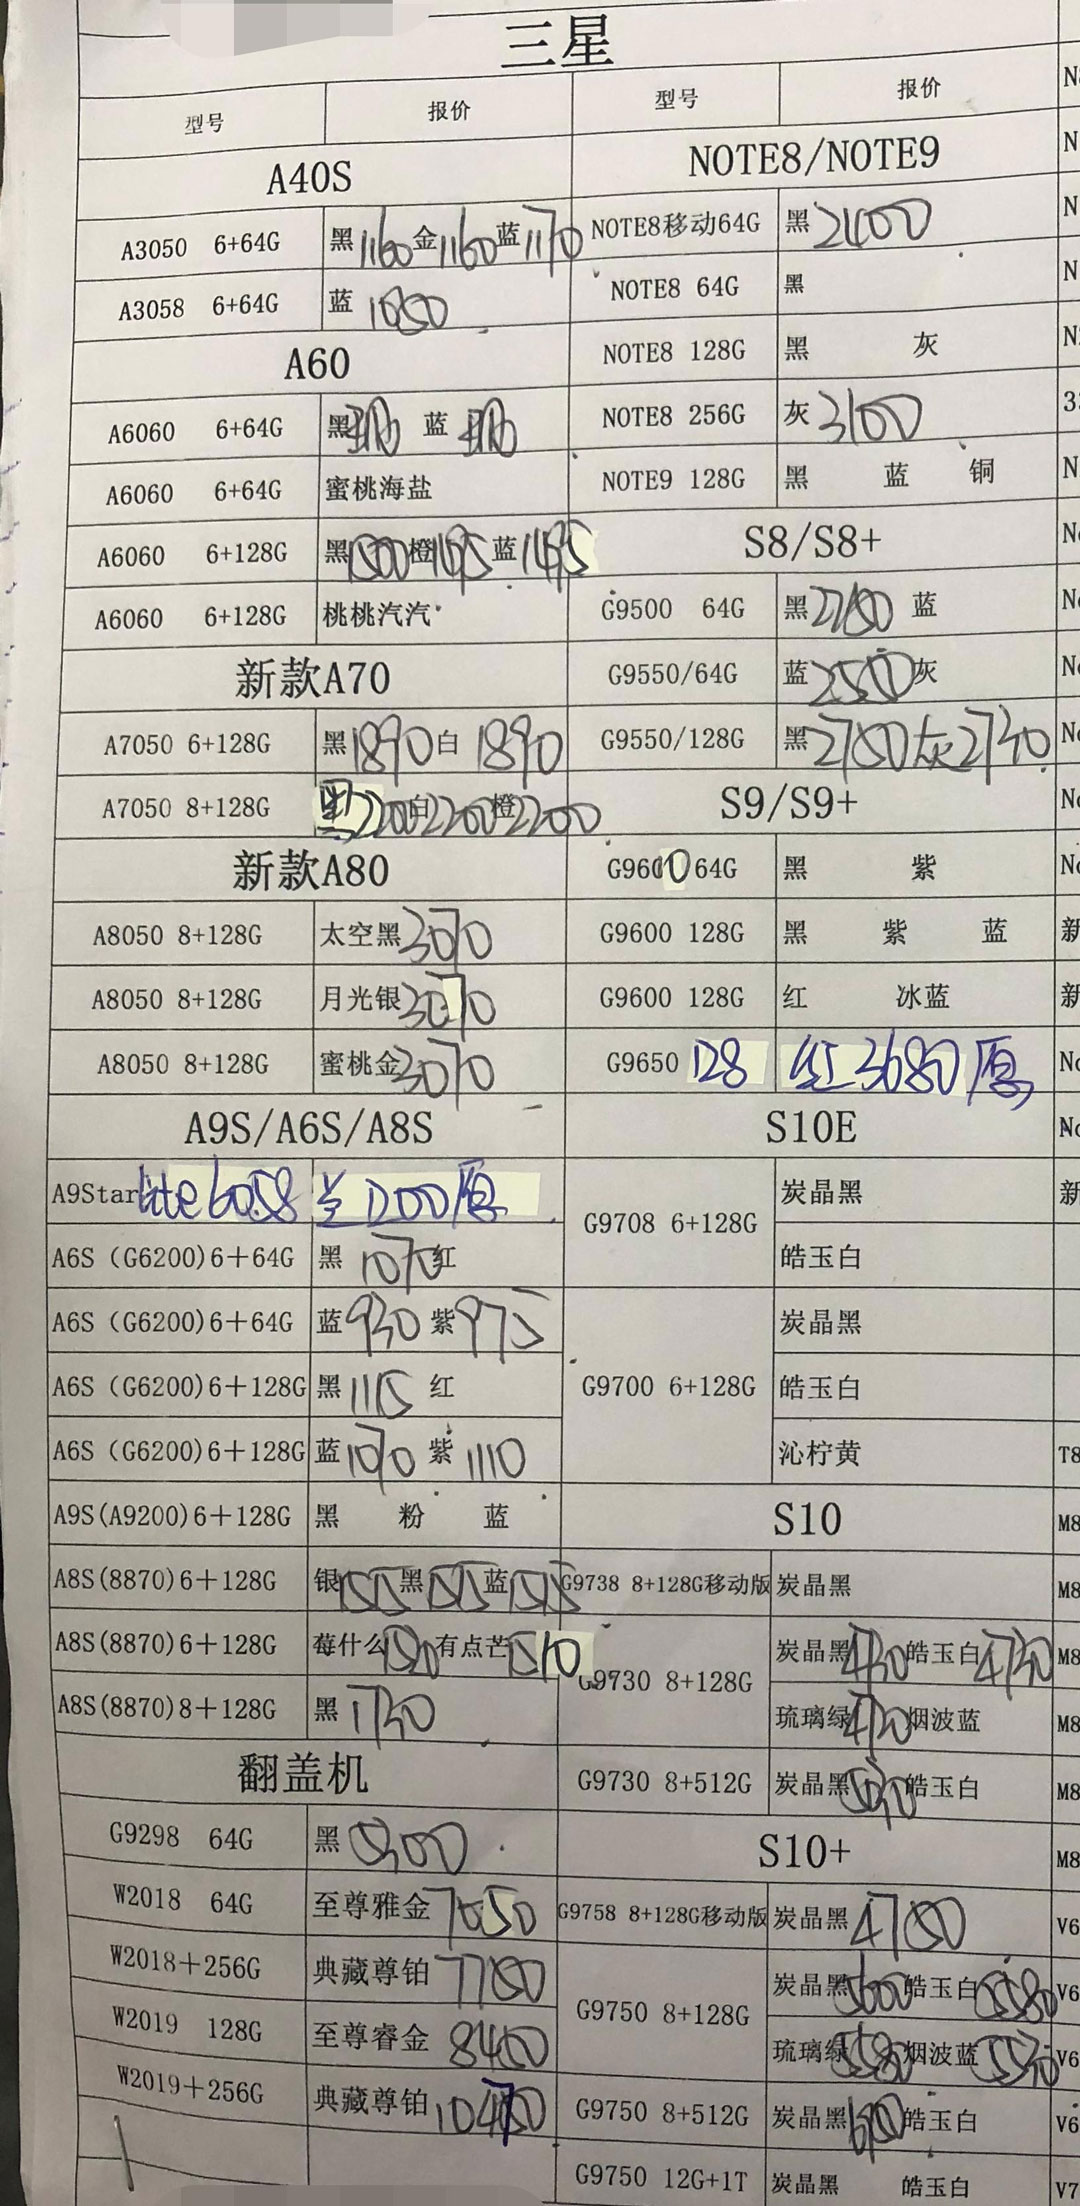 三星
型号 报价
A40S
A3050 6+64G 黑1160金1160蓝1170
A3058 6+64G 蓝 1050
A60
A6060 6+64G 黑 蓝
A6060 6+64G 蜜桃海盐
A6060 6+128G 黑1500橙1495蓝1495
A6060 6+128G 桃桃汽汽
新款A70
A7050 6+128G 黑1890白1890
A7050 8+128G 黑2200白2200橙2200
新款A80
A8050 8+128G 太空黑3070
A8050 8+128G 月光银3070
A8050 8+128G 蜜桃金3070
A9S/A6S/A8S
A9Star lite 6058 兰1200原
A6S (G6200)6+64G 黑 1070红
A6S (G6200)6+64G 蓝930 紫975
A6S (G6200)6+128G 黑1115 红
A6S (G6200)6+128G 蓝1070 紫1110
A9S(A9200)6+128G 黑 粉 蓝
A8S(8870)6+128G 银1515黑1515蓝1515
A8S(8870)6+128G 莓什么 有点芒1510
A8S(8870)8+128G 黑1730
翻盖机
G9298 64G 黑
W2018 64G 至尊雅金7650
W2018+256G 典藏尊铂
W2019 128G 至尊睿金8400
W2019+256G 典藏尊铂
型号 报价
NOTE8/NOTE9
NOTE8移动64G 黑2400
NOTE8 64G 黑
NOTE8 128G 黑 灰
NOTE8 256G 灰3100
NOTE9 128G 黑 蓝 铜
S8/S8+
G9500 64G 黑 蓝
G9550/64G 蓝2550灰
G9550/128G 黑2750灰2730
S9/S9+
G9600 64G 黑 紫
G9600 128G 黑 紫 蓝
G9600 128G 红 冰蓝
G9650 128 红3680原
S10E
G9708 6+128G 炭晶黑
皓玉白
G9700 6+128G 炭晶黑
皓玉白
沁柠黄
S10
G9738 8+128G移动版 炭晶黑
G9730 8+128G 炭晶黑4730皓玉白4730
琉璃绿 烟波蓝
G9730 8+512G 炭晶黑 皓玉白
S10+
G9758 8+128G移动版 炭晶黑
G9750 8+128G 炭晶黑5600皓玉白5580
琉璃绿5580烟波蓝
G9750 8+512G 炭晶黑 皓玉白
G9750 12G+1T 炭晶黑 皓玉白